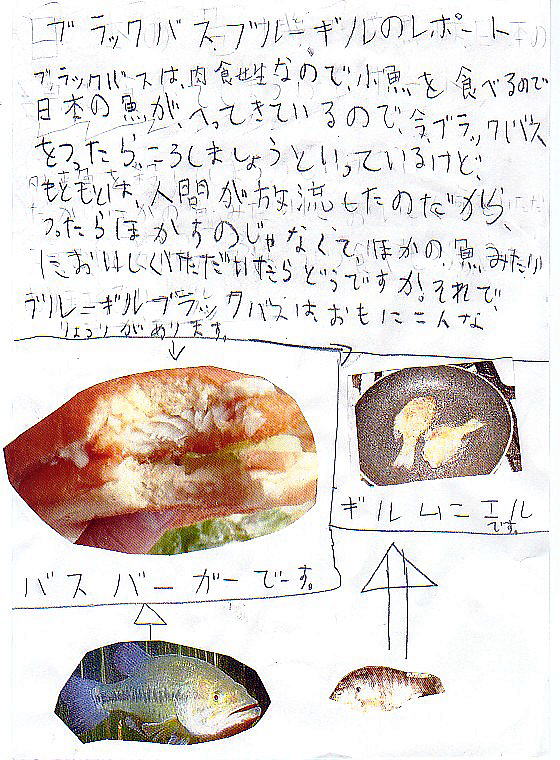 ブラックバスブルーギルのレポート
ブラックバスは、肉食性なので、小魚を食べるので
日本の魚が、へってきているので、今、ブラックバス
をつったら、ころしましょうといっているけど、
もともとは、人間が放流したのだから、
つったらほかすのじゃなくて、ほかの魚みたい
においしくいただいたらどうですか。それで、
ブルーギルブラックバスは、おもにこんな
りょうりがあります。
ギルムニエル
です。
バスバーガーでーす。